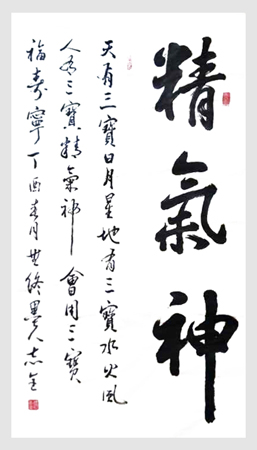 精氣神
天有三寶日月星地有三寶水火風
人有三寶精氣神會用三寶
福壽寧丁酉春月墨人志全